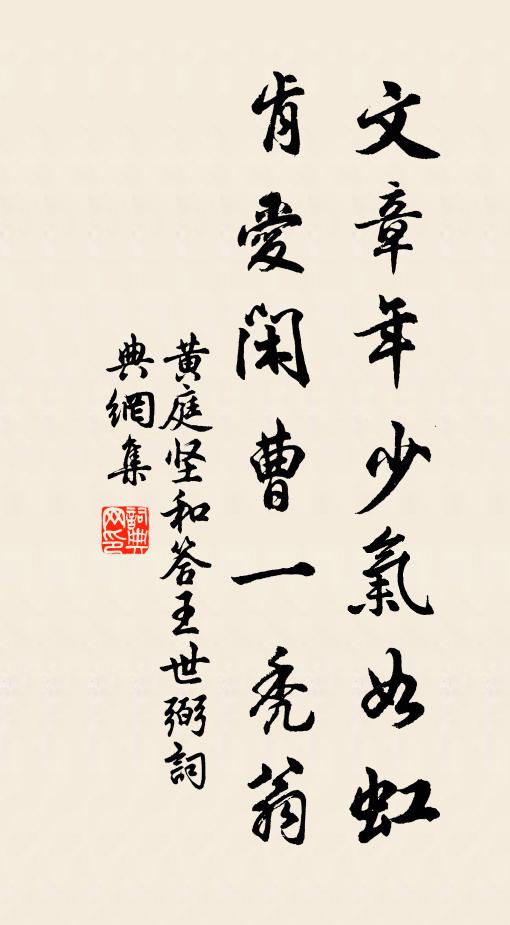 文章年少氣如虹
肯愛閑曹一秃翁
黄庭坚和答王世弼詞
典網集
詞典
网印